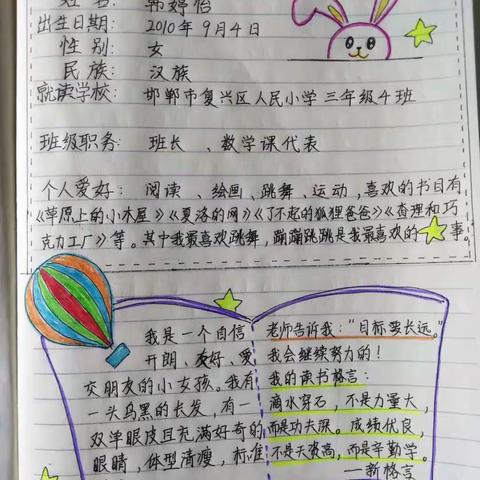 姓名: 韩婷怡
出生日期: 2010年9月4日
性别: 女
民族: 汉族
就读学校: 邯郸市复兴区人民小学三年级4班
班级职务: 班长、数学课代表
个人爱好: 阅读、绘画、跳舞、运动,喜欢的书目有
《草原上的小木屋》《夏洛的网》《了不起的狐狸爸爸》《查理和巧
克力工厂》等。其中我最喜欢跳舞,蹦蹦跳跳是我最喜欢的事。
我是一个自信
开朗、友好、爱
交朋友的小女孩。我有
一头乌黑的长发,有一
双洋眼皮且充满好奇的
眼睛,体型清瘦,标准
老师告诉我:"目标要长远。"
我会继续努力的!
我的读书格言:
滴水穿石,不是力量大,
而是功夫深。成绩优良,
不是天资高,而是辛勤学。
——新格言